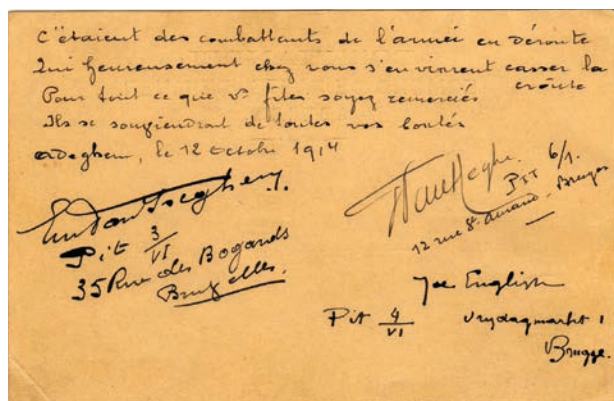 C'étaient des combattants de l'armée en déroute
Qui heureusement chez vous s'en vinrent casser la croûte
Pour tout ce que vs fîtes soyez remerciés
Ils se souviendront de toutes vos bontés
Oedeghem, le 12 octobre 1914
Pit 3/VI
35 Rue des Bogards
Bruxelles.
Pit 6/1.
12 rue St. Amand. Bruges
Joe English
Pit 4/VI Vrydagmarkt 1
Brugge.